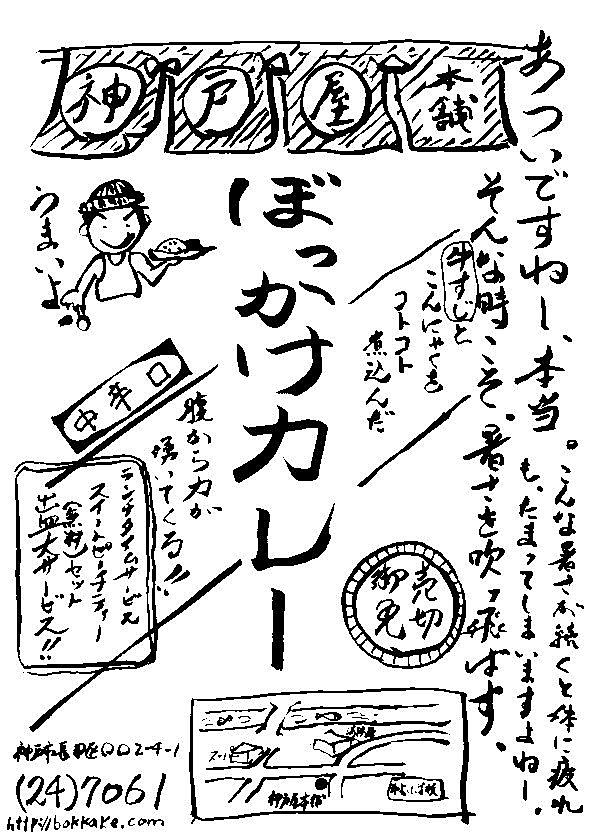 神戸屋本舗
あついですねー、本当。
こんな暑さが続くと体に疲れ
も、たまってしまいますよねー。
そんな時こそ、暑さを吹っ飛ばす、
牛すじと
こんにゃくを
コトコト
煮込んだ
ぼっかけカレー
うまいよ
中辛口
腹から力が
湧いてくる!!
ランチタイムサービス
スイートピーチティー
(無料)セット
出血大サービス!!
売切
御免
神戸本舗
神戸市長田区〇〇2-4-1
(24)7061
http://bokkake.com